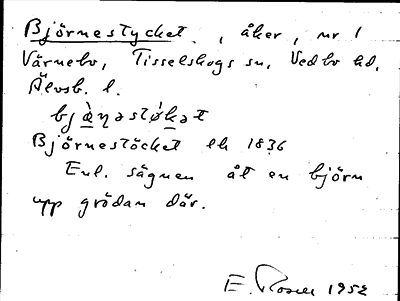 Björnestycket, åker, nr 1
Värnebo, Tisselskogs sn, Vedbo hd,
Älvsb. l.
bjæ̀ꞃəstø̀kət
Björnestöcket lk 1836
Enl. sägnen åt en björn
upp grödan där.
E. Rosell 1952